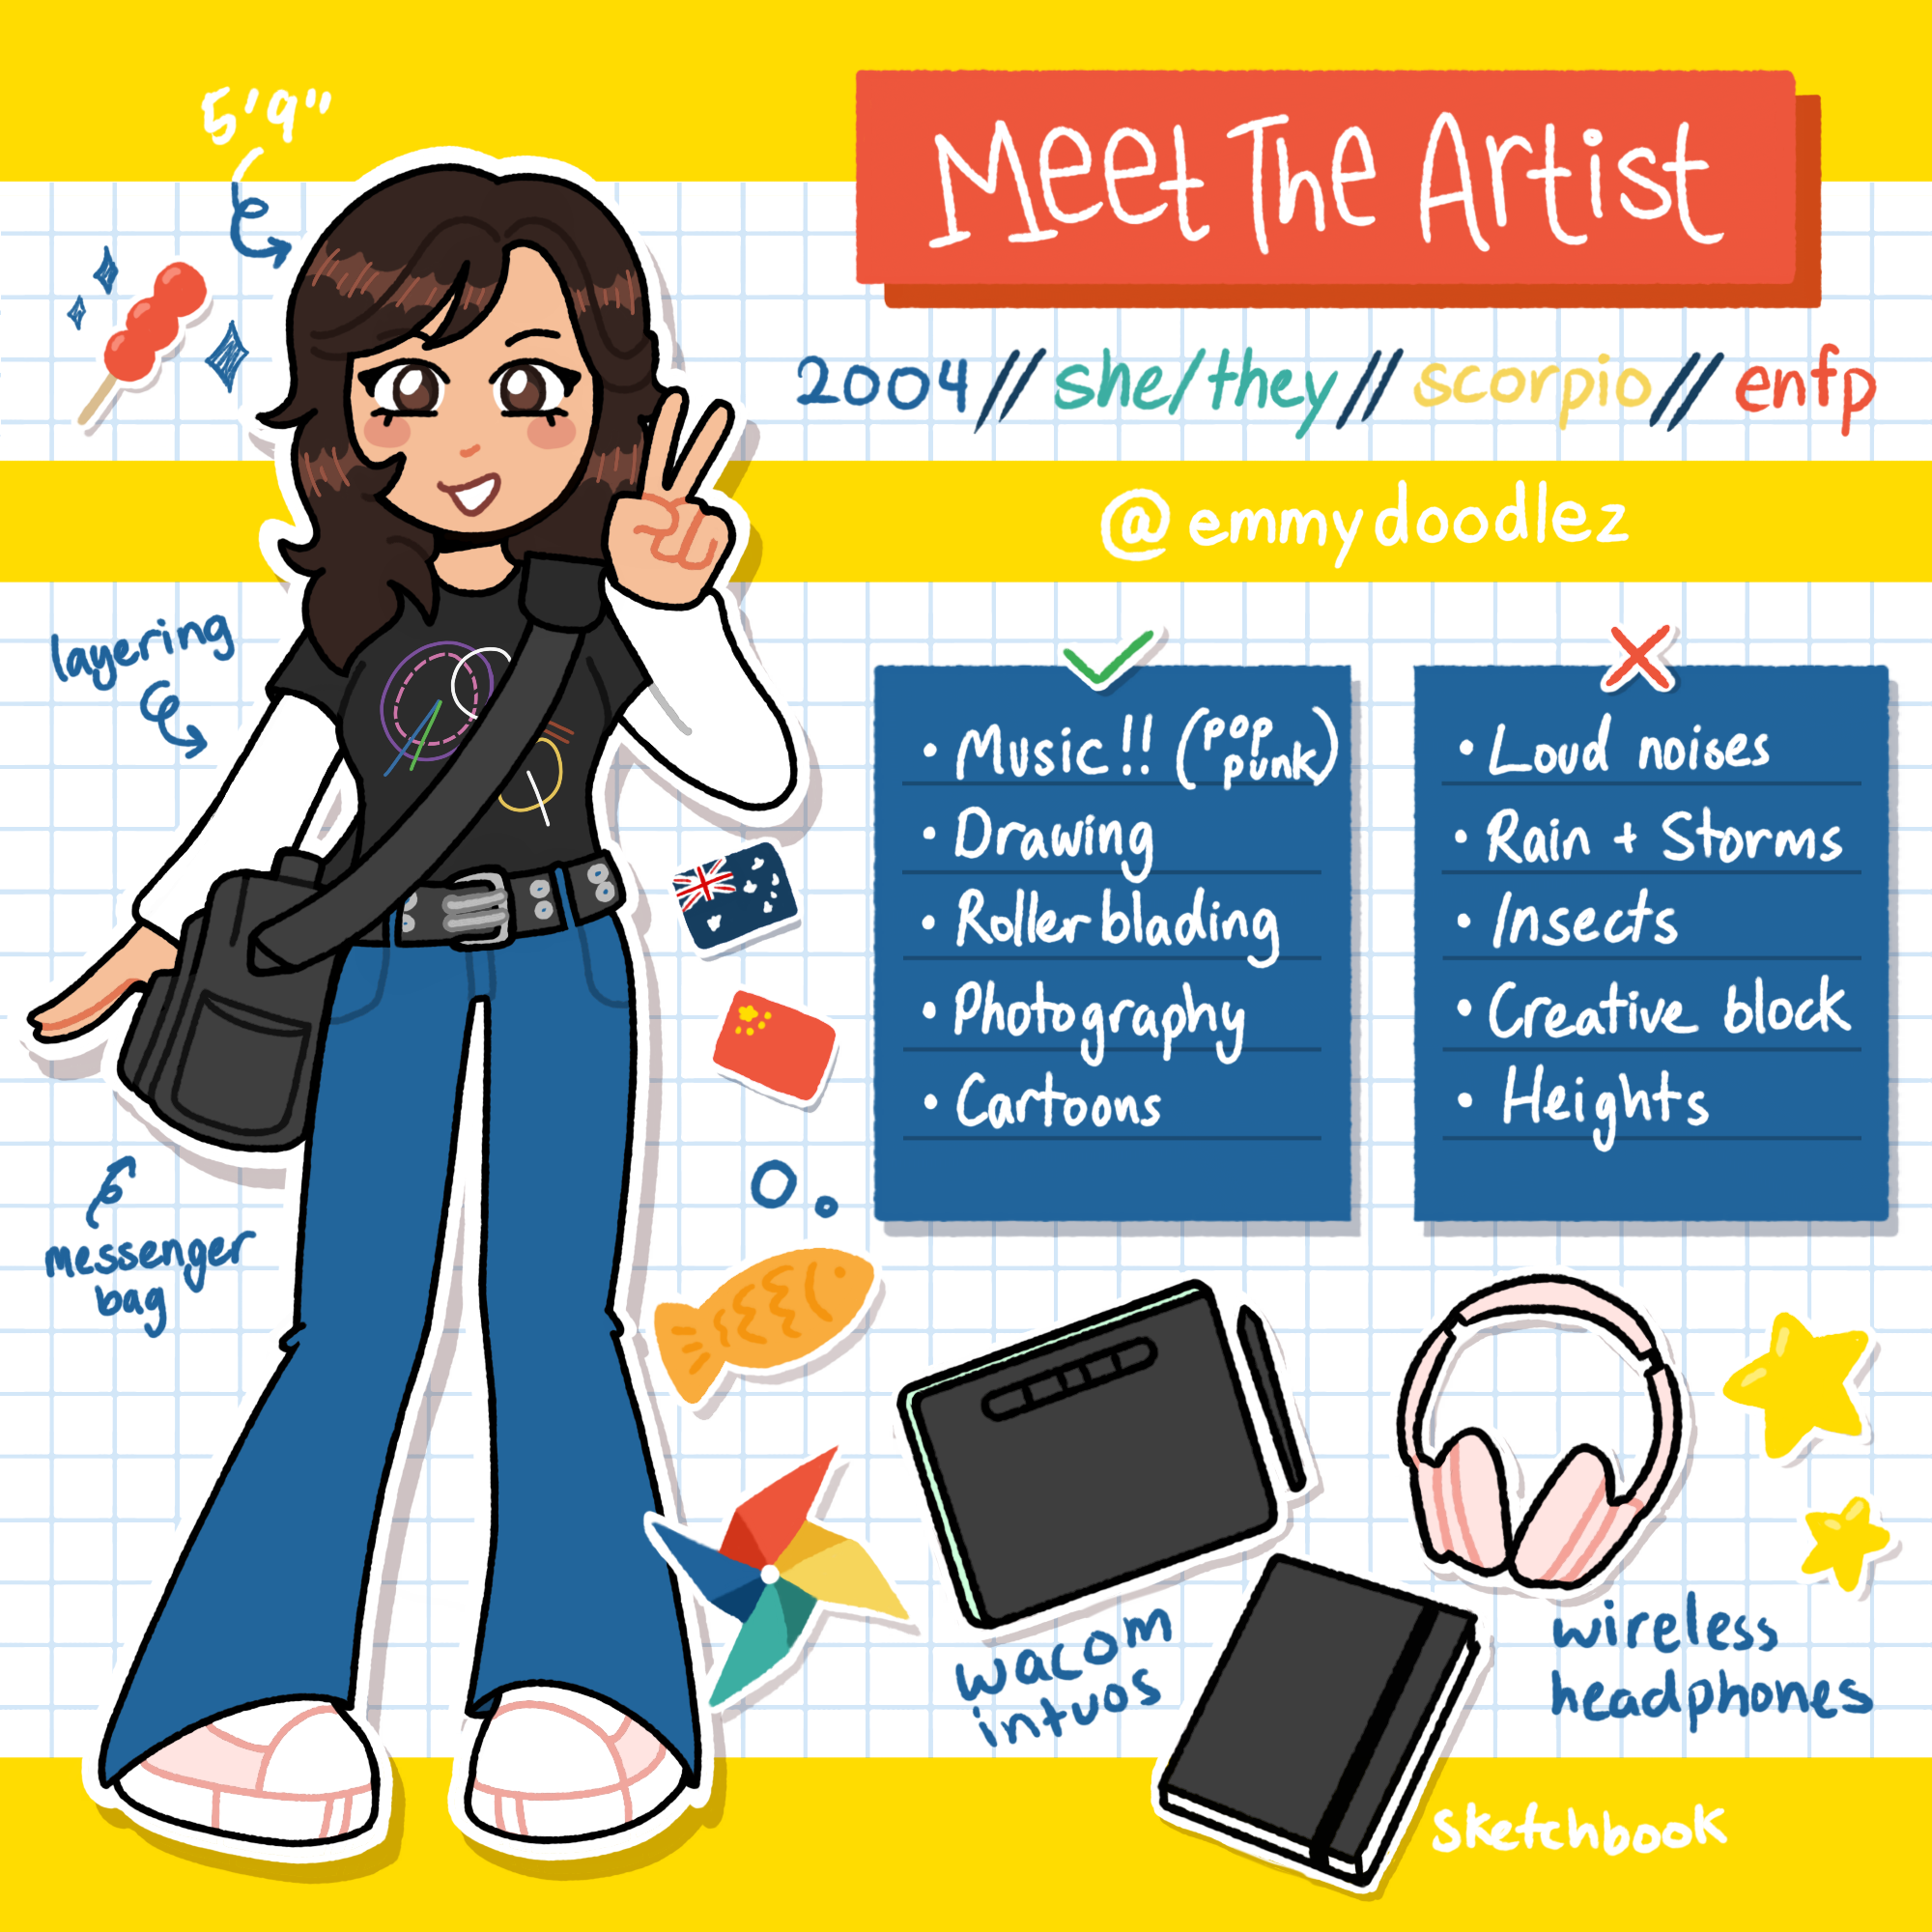 5'9"
Meet The Artist
2004 // she/they // scorpio // enfp
@emmydoodlez
layering
messenger
bag
• Music!! (pop punk)
• Drawing
• Rollerblading
• Photography
• Cartoons
• Loud noises
• Rain + Storms
• Insects
• Creative block
• Heights
wacom
intuos
wireless
headphones
sketchbook